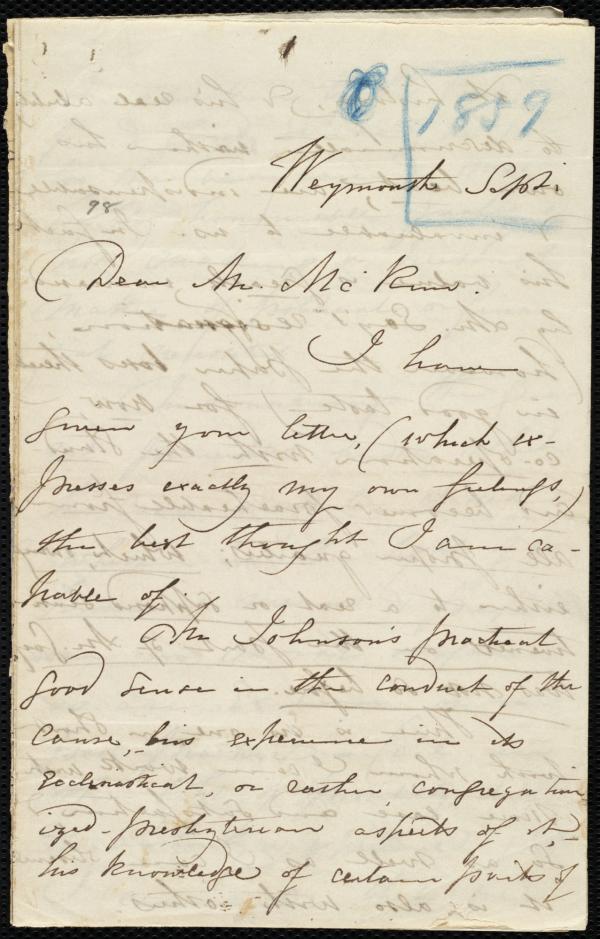 1859
Weymouth Sept.
98
Dear Mr. McKim.
I have
given your letter, (which ex-
presses exactly my own feelings,)
the best thought I am ca-
pable of.
Mr Johnson's practical
good sense in the conduct of the
cause, his experience in its
ecclesiastical, or rather congregation
ized-presbyterian aspects of it,
his knowledge of certain parts of